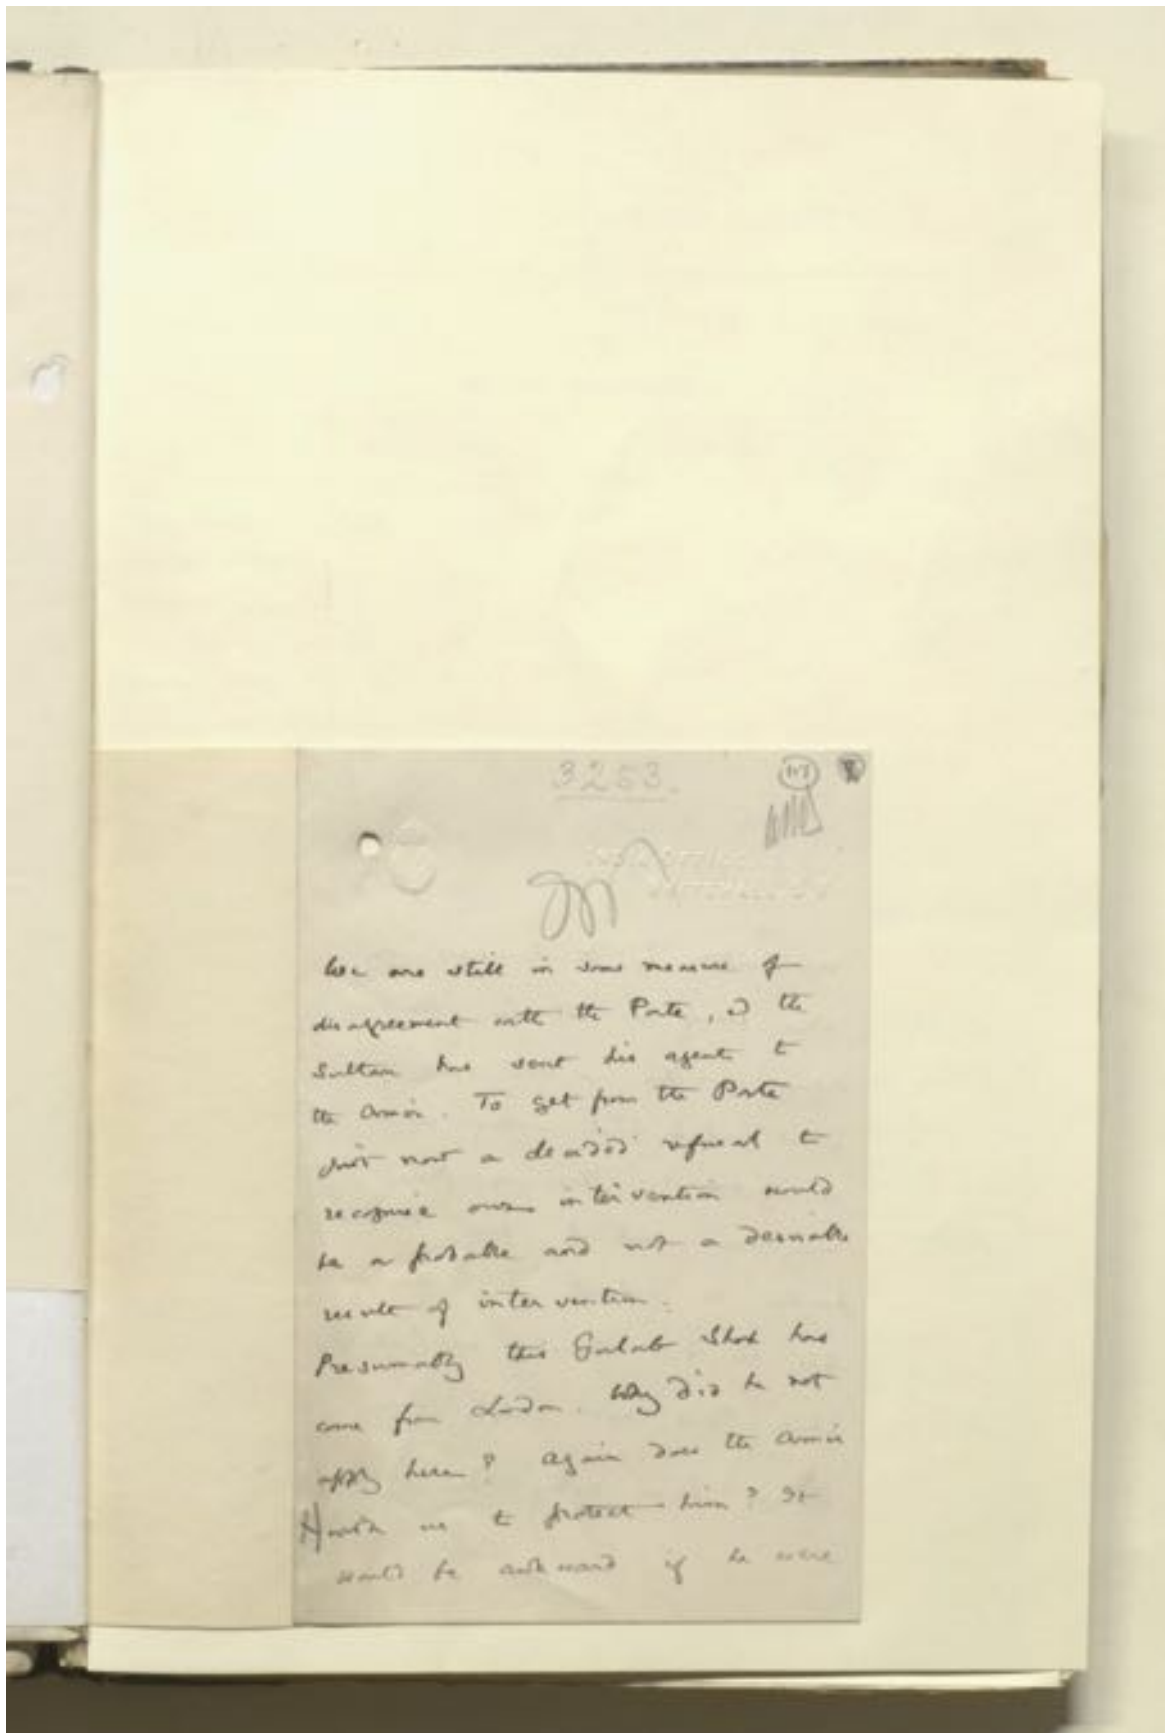 3253.
We are still in some measure of
disagreement with the Porte, & the
Sultan has sent his agent to
the Amir. To get from the Porte
just now a decided refusal to
recognise our intervention would
be a probable and not a desirable
result of intervention.
Presumably this Gulab Shah has
come from London. Why did he not
apply here? Again does the Amir
wish us to protect him? It
would be awkward if he were